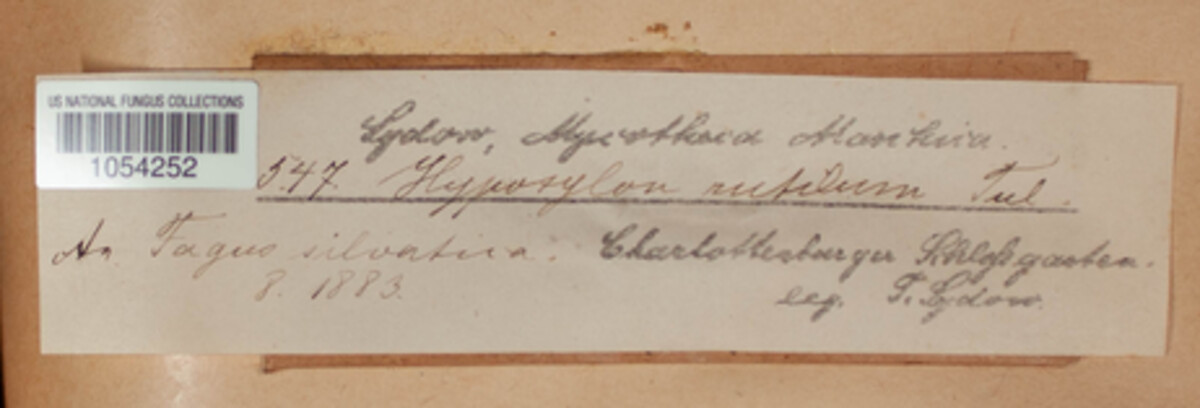 US NATIONAL FUNGUS COLLECTIONS
1054252
Sydow, Mycotheca Marchica.
547. Hypoxylon rutilum Tul.
An Fagus silvatica. Charlottenburger Schloßgarten.
8. 1883. leg. P. Sydow.